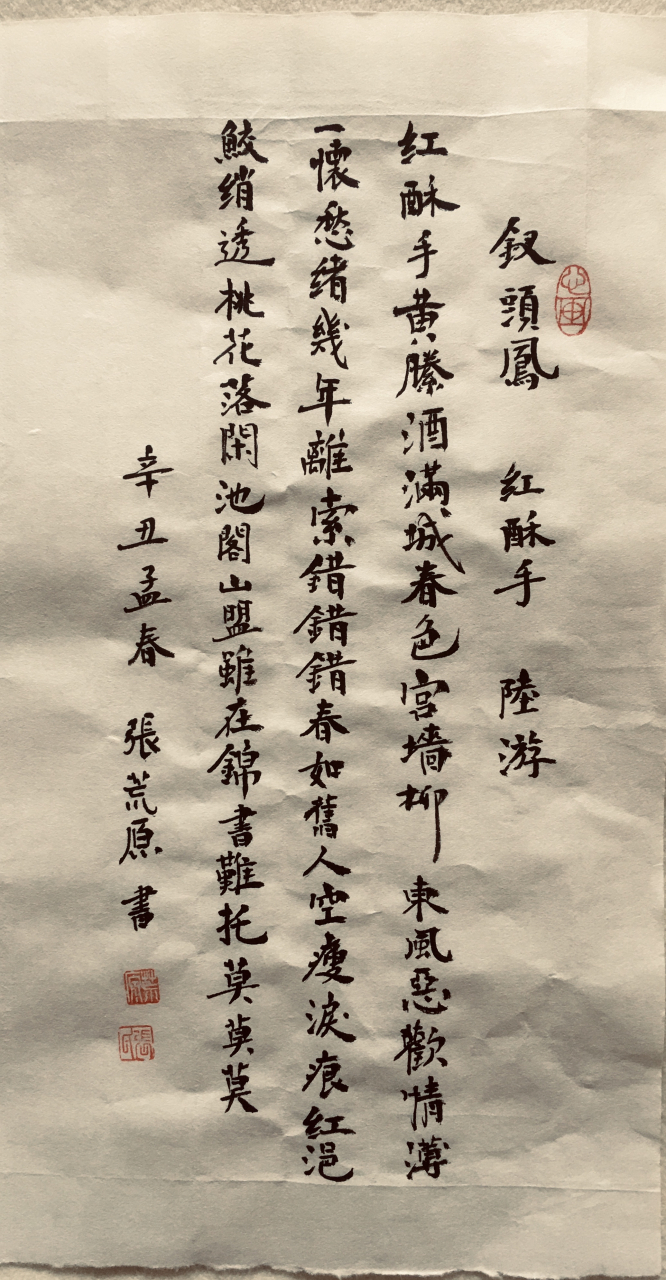 釵頭鳳 紅酥手 陸游
紅酥手黄縢酒滿城春色宮墻柳東風惡歡情薄
一懷愁緒幾年離索錯錯錯春如舊人空瘦淚痕紅浥
鮫绡透桃花落閑池閣山盟雖在錦書難托莫莫莫
辛丑孟春 張荒原書